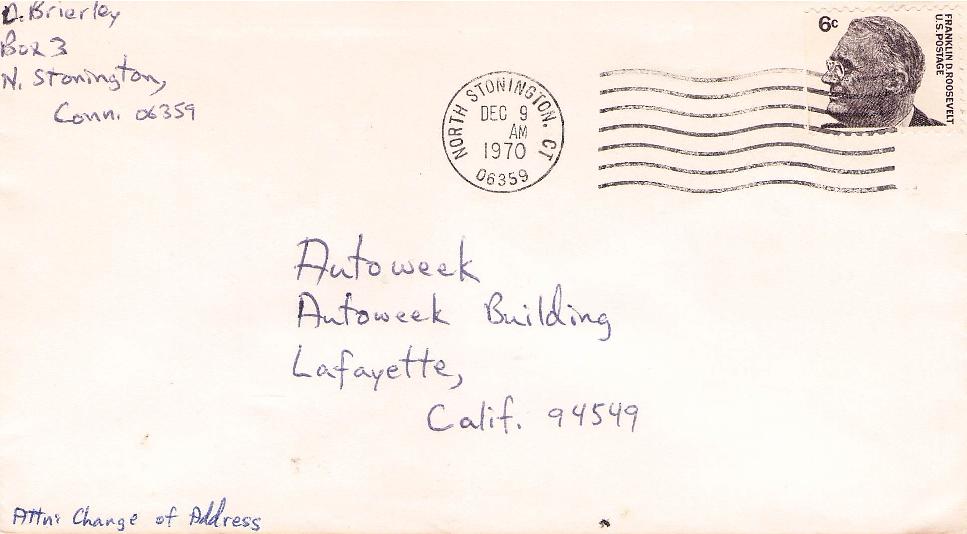 D. Brierley
Box 3
N. Stonington,
Conn. 06359
NORTH STONINGTON, CT
DEC 9
AM
1970
06359
6c
FRANKLIN D. ROOSEVELT
U.S. POSTAGE
Autoweek
Autoweek Building
Lafayette,
Calif. 94549
Attn: Change of Address